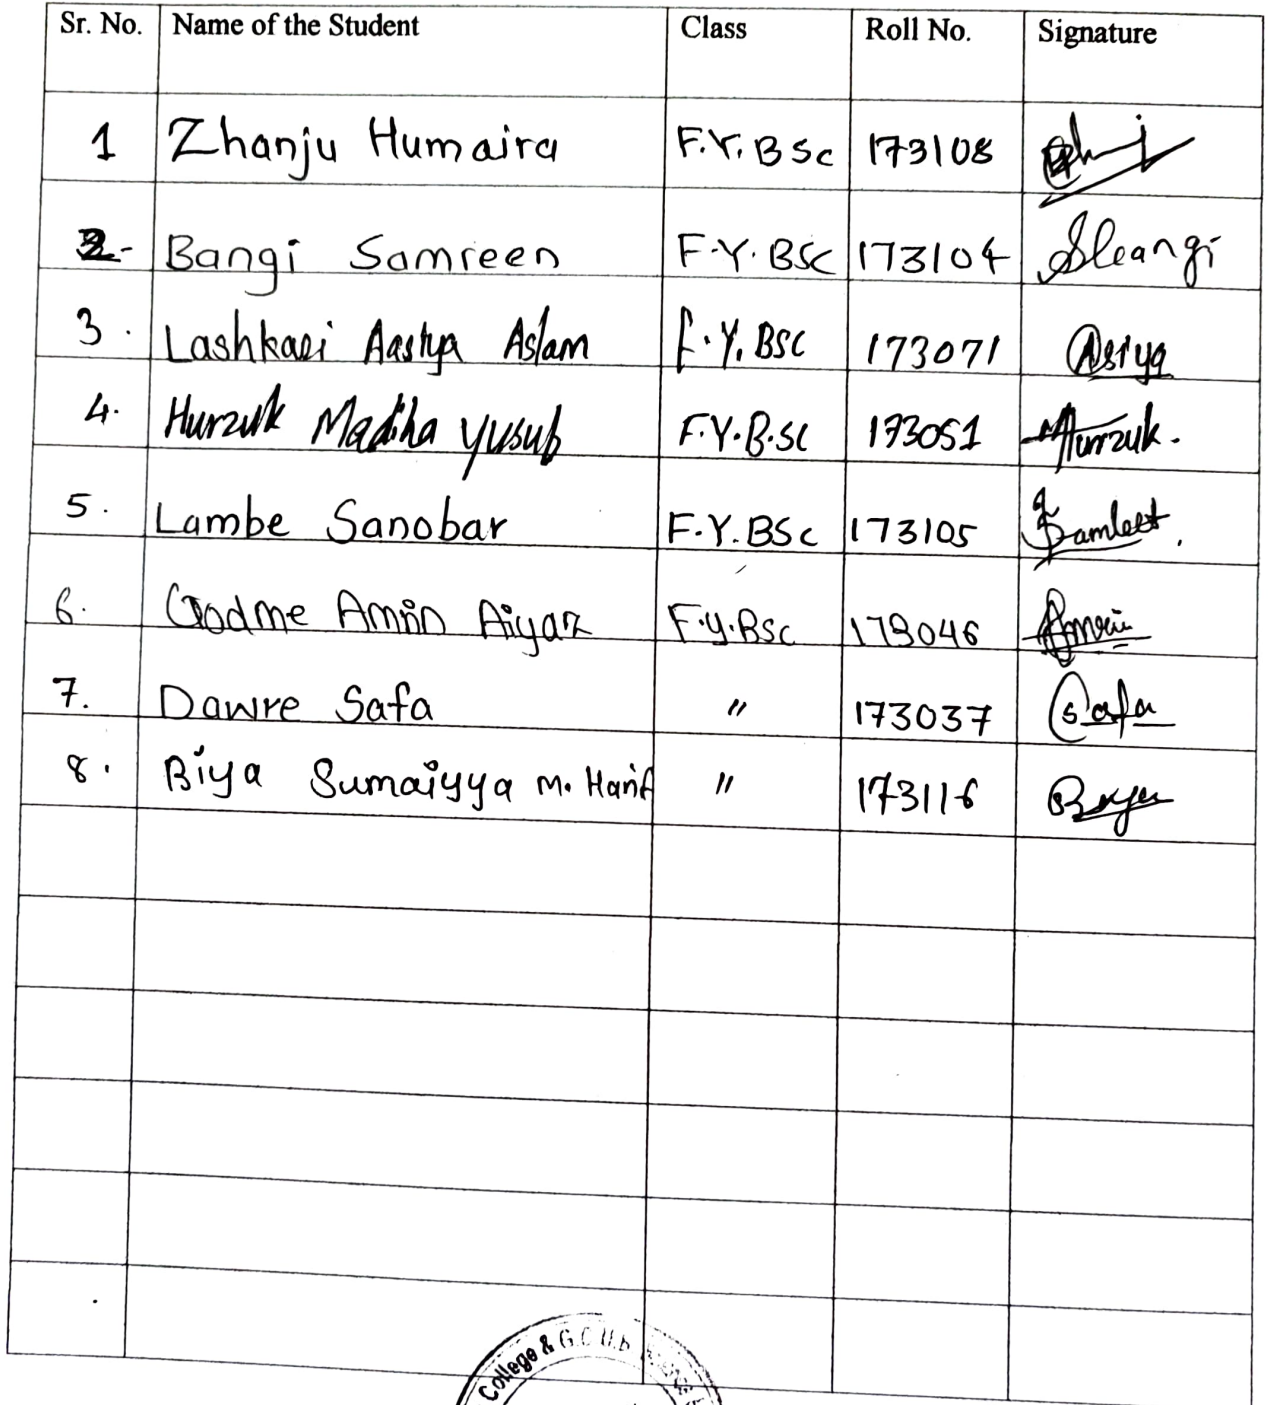 Sr. No. Name of the Student Class Roll No. Signature
1 Zhanju Humaira F.Y.BSc 173108
2- Bangi Samreen F.Y.BSc 173104
3. Lashkari Aasiya Aslam F.Y.BSc 173071 Asiya
4. Hurzuk Madiha Yusuf F.Y.B.Sc 173051 Hurzuk.
5. Lambe Sanobar F.Y.BSc 173105
6. Godme Amin Aiyaz F.Y.BSc 173046
7. Dawre Safa " 173037 Safa
8. Biya Sumaiyya M. Hanif " 173116
College & G.C